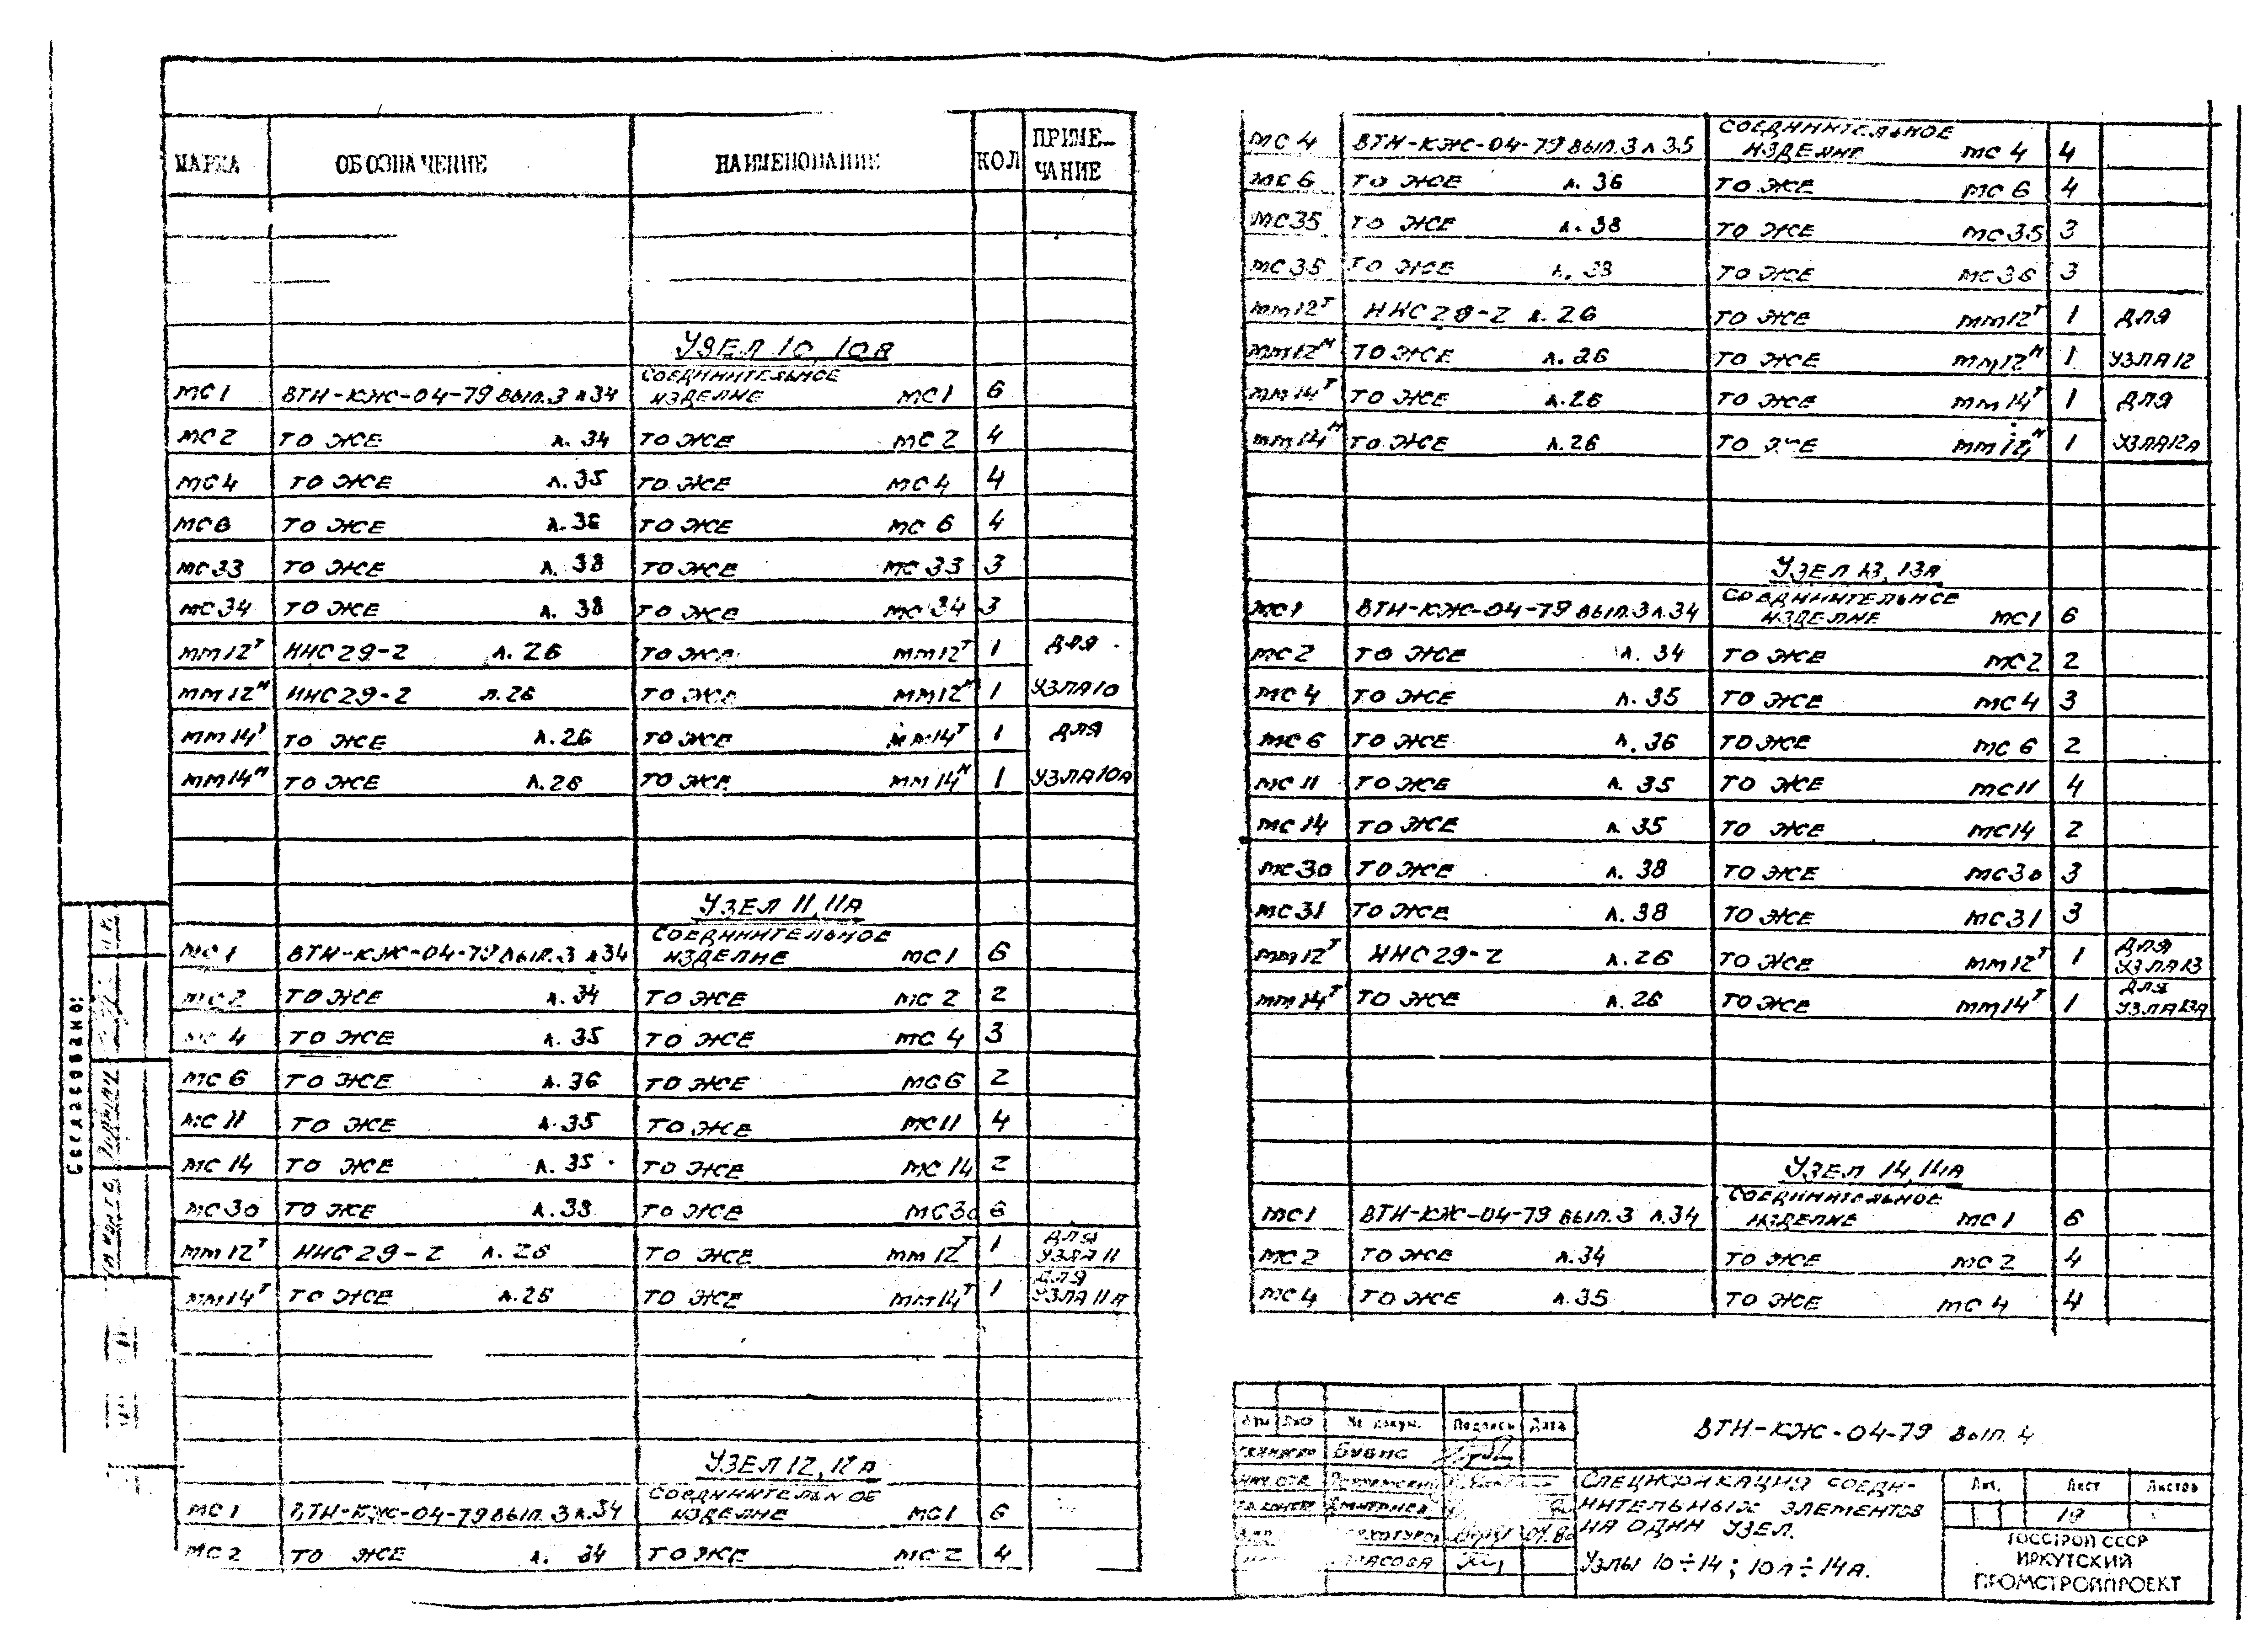 МАРКА ОБОЗНАЧЕНИЕ НАИМЕНОВАНИЕ КОЛ ПРИМЕ-
ЧАНИЕ
УЗЕЛ 10, 10А
МС1 ВТН-КЖ-04-79 ВЫП.3 Л34 СОЕДИНИТЕЛЬНОЕ ИЗДЕЛИЕ МС1 6
МС2 ТО ЖЕ Л. 34 ТО ЖЕ МС2 4
МС4 ТО ЖЕ Л.35 ТО ЖЕ МС4 4
МС6 ТО ЖЕ Л.36 ТО ЖЕ МС6 4
МС33 ТО ЖЕ Л. 38 ТО ЖЕ МС33 3
МС34 ТО ЖЕ Л. 38 ТО ЖЕ МС34 3
ММ12Т ИИС29-2 Л.26 ТО ЖЕ ММ12Т 1 ДЛЯ
ММ12Н ИИС29-2 Л.26 ТО ЖЕ ММ12Н 1 УЗЛА10
ММ14Т ТО ЖЕ Л.26 ТО ЖЕ ММ14Т 1 ДЛЯ
ММ14Н ТО ЖЕ Л.26 ТО ЖЕ ММ14Н 1 УЗЛА10А
УЗЕЛ 11, 11А
МС1 ВТН-КЖ-04-79 ВЫП.3 Л34 СОЕДИНИТЕЛЬНОЕ ИЗДЕЛИЕ МС1 6
МС2 ТО ЖЕ Л.34 ТО ЖЕ МС2 2
МС4 ТО ЖЕ Л.35 ТО ЖЕ МС4 3
МС6 ТО ЖЕ Л.36 ТО ЖЕ МС6 2
МС11 ТО ЖЕ Л.35 ТО ЖЕ МС11 4
МС14 ТО ЖЕ Л.35 ТО ЖЕ МС14 2
МС30 ТО ЖЕ Л.38 ТО ЖЕ МС30 6
ММ12Т ИИС29-2 Л.26 ТО ЖЕ ММ12Т 1 ДЛЯ УЗЛА 11
ММ14Т ТО ЖЕ Л.26 ТО ЖЕ ММ14Т 1 ДЛЯ УЗЛА 11А
УЗЕЛ 12, 12А
МС1 ВТН-КЖ-04-79 ВЫП.3 Л.34 СОЕДИНИТЕЛЬНОЕ ИЗДЕЛИЕ МС1 6
МС2 ТО ЖЕ Л. 34 ТО ЖЕ МС2 4
МС4 ВТН-КЖ-04-79 ВЫП.3 Л.35 СОЕДИНИТЕЛЬНОЕ ИЗДЕЛИЕ МС4 4
МС6 ТО ЖЕ Л. 36 ТО ЖЕ МС6 4
МС35 ТО ЖЕ Л. 38 ТО ЖЕ МС35 3
МС35 ТО ЖЕ Л. 38 ТО ЖЕ МС36 3
ММ12Т ИИС29-2 Л.26 ТО ЖЕ ММ12Т 1 ДЛЯ
ММ12Н ТО ЖЕ Л.26 ТО ЖЕ ММ12Н 1 УЗЛА12
ММ14Т ТО ЖЕ Л.26 ТО ЖЕ ММ14Т 1 ДЛЯ
ММ14Н ТО ЖЕ Л.26 ТО ЖЕ 1 УЗЛА12А
УЗЕЛ 13, 13А
МС1 ВТН-КЖ-04-79 ВЫП.3 Л.34 СОЕДИНИТЕЛЬНОЕ ИЗДЕЛИЕ МС1 6
МС2 ТО ЖЕ Л. 34 ТО ЖЕ МС2 2
МС4 ТО ЖЕ Л. 35 ТО ЖЕ МС4 3
МС6 ТО ЖЕ Л. 36 ТО ЖЕ МС6 2
МС11 ТО ЖЕ Л. 35 ТО ЖЕ МС11 4
МС14 ТО ЖЕ Л. 35 ТО ЖЕ МС14 2
МС30 ТО ЖЕ Л. 38 ТО ЖЕ МС30 3
МС31 ТО ЖЕ Л. 38 ТО ЖЕ МС31 3
ММ12Т ИИС29-2 Л.26 ТО ЖЕ ММ12Т 1 ДЛЯ УЗЛА13
ММ14Т ТО ЖЕ Л.26 ТО ЖЕ ММ14Т 1 ДЛЯ УЗЛА13А
УЗЕЛ 14, 14А
МС1 ВТН-КЖ-04-79 ВЫП.3 Л.34 СОЕДИНИТЕЛЬНОЕ ИЗДЕЛИЕ МС1 6
МС2 ТО ЖЕ Л.34 ТО ЖЕ МС2 4
МС4 ТО ЖЕ Л.35 ТО ЖЕ МС4 4
Согласовано:
Изм Лист № докум. Подпись Дата
Бубис
ВТН-КЖ-04-79 ВЫП. 4
СПЕЦИФИКАЦИЯ СОЕДИ-
НИТЕЛЬНЫХ ЭЛЕМЕНТОВ
НА ОДИН УЗЕЛ.
УЗЛЫ 10÷14; 10А÷14А.
Лит. Лист Листов
19
ГОССТРОЙ СССР
ИРКУТСКИЙ
ПРОМСТРОЙПРОЕКТ